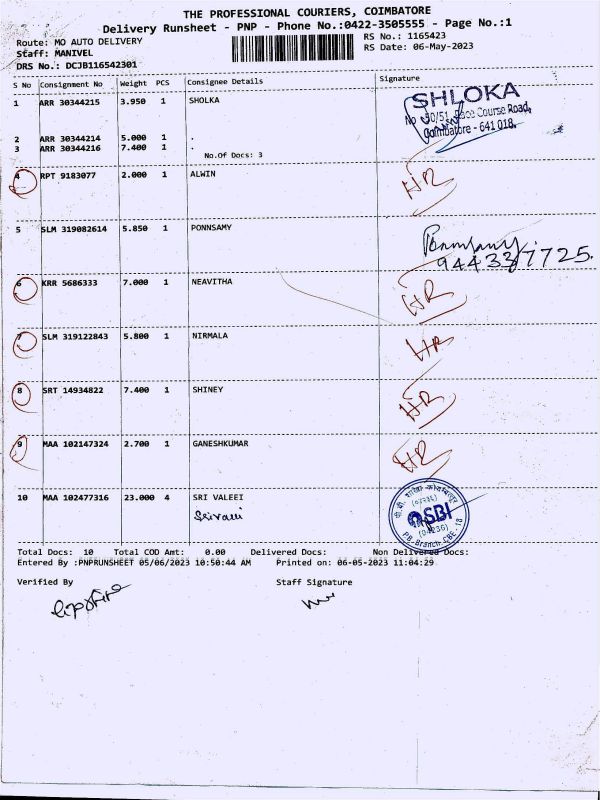 THE PROFESSIONAL COURIERS, COIMBATORE
Delivery Runsheet - PNP - Phone No.:0422-3505555 - Page No.:1
Route: MO AUTO DELIVERY
RS No.: 1165423
Staff: MANIVEL
RS Date: 06-May-2023
DRS No.: DCJB116542301
S No Consignment No Weight PCS Consignee Details Signature
1 ARR 30344215 3.950 1 SHOLKA
SHLOKA
No 30/51, Race Course Road,
Coimbatore - 641 018.
2 ARR 30344214 5.000 1 .
3 ARR 30344216 7.400 1 .
No.Of Docs: 3
4 RPT 9183077 2.000 1 ALWIN HR
5 SLM 319082614 5.850 1 PONNSAMY
Ponnsamy
6 KRR 5686333 7.000 1 NEAVITHA HR
7 SLM 319122843 5.800 1 NIRMALA HR
8 SRT 14934822 7.400 1 SHINEY HR
9 MAA 102147324 2.700 1 GANESHKUMAR HR
10 MAA 102477316 23.000 4 SRI VALEEI
SBI
(04236)
P.B. Branch, CBE-18
Total Docs: 10 Total COD Amt: 0.00 Delivered Docs: Non Delivered Docs:
Entered By :PNPRUNSHEET 05/06/2023 10:50:44 AM Printed on: 06-05-2023 11:04:29
Verified By Staff Signature